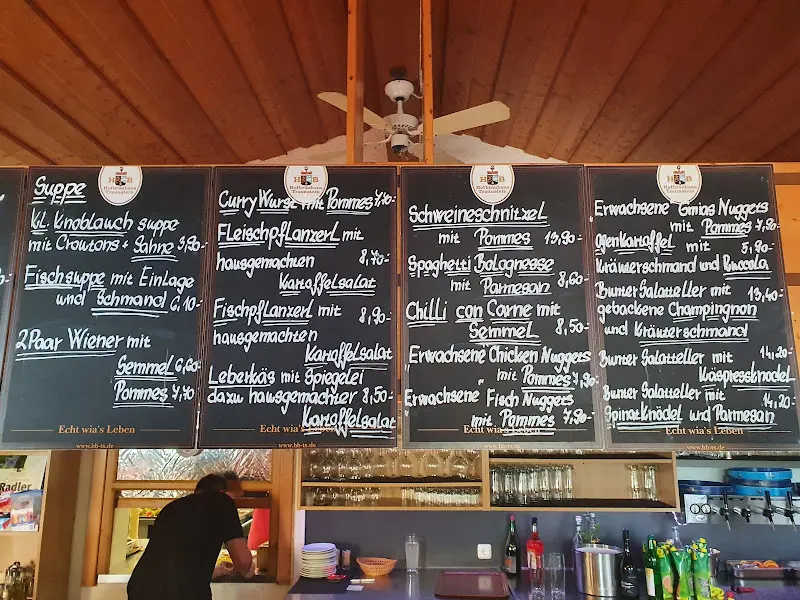 Suppe
Kl. Knoblauch suppe
mit Croutons + Sahne 3,90-
Fischsuppe mit Einlage
und Schmand 6.10-
2 Paar Wiener mit
Semmel 6,60-
Pommes 7,70
Echt wia's Leben
www.hb-ts.de
H B
Hofbräuhaus
Traunstein
Curry Wurst mit Pommes 7,40-
Fleischpflanzerl mit
hausgemachten 8,70-
Kartoffelsalat
Fischpflanzerl mit 8,90-
hausgemachten
Kartoffelsalat
Leberkäs mit Spiegelei
dazu hausgemachter 8,50-
Kartoffelsalat
Echt wia's Leben
www.hb-ts.de
H B
Hofbräuhaus
Traunstein
Schweineschnitzel
mit Pommes 13,90-
Spaghetti Bolognesse
mit Parmesan 8,60-
Chilli con Carne mit
Semmel 8,50-
Erwachsene Chicken Nuggets
mit Pommes 7,90-
Erwachsene" Fisch Nuggets
mit Pommes 7,90-
Echt wia's Leben
www.hb-ts.de
H B
Hofbräuhaus
Traunstein
"Erwachsene Nuggets
mit Pommes 7,90-
Ofenkartoffel mit 5,90-
Kräuterschmand und Broccoli
Bunter Salatteller mit 13,40-
gebackene Champingnon
und Kräuterschmand
Bunter Salatteller mit 14,20-
Kaspressknödel
Bunter Salatteller mit 14,20-
Spinatknödel und Parmesan
Echt wia's Leben
www.hb-ts.de
H B
Hofbräuhaus
Traunstein
Radler